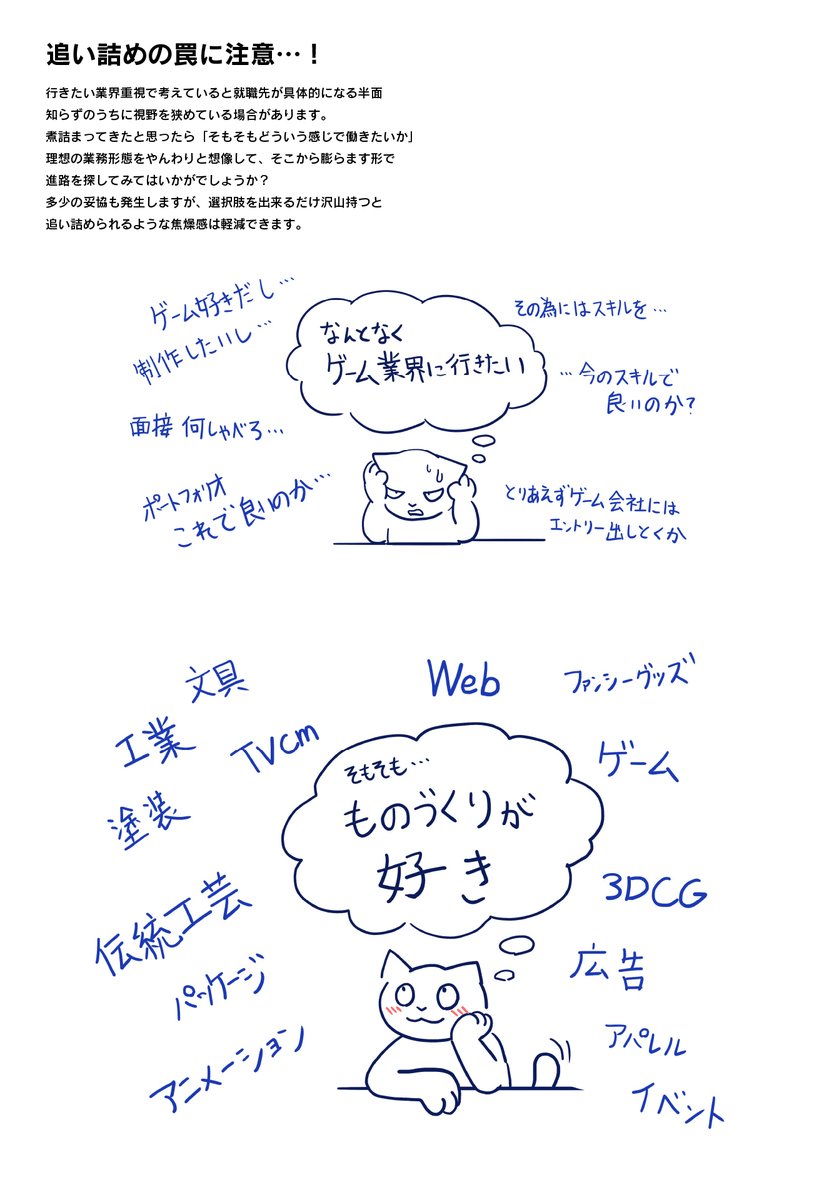 追い詰めの罠に注意…！
行きたい業界重視で考えていると就職先が具体的になる半面
知らずのうちに視野を狭めている場合があります。
煮詰まってきたと思ったら「そもそもどういう感じで働きたいか」
理想の業務形態をやんわりと想像して、そこから膨らます形で
進路を探してみてはいかがでしょうか？
多少の妥協も発生しますが、選択肢を出来るだけ沢山持つと
追い詰められるような焦燥感は軽減できます。
ゲーム好きだし…
制作したいし…
面接 何しゃべろ…
ポートフォリオ
これで良いのか…
なんとなく
ゲーム業界に行きたい
その為にはスキルを…
…今のスキルで
良いのか？
とりあえずゲーム会社には
エントリー出しとくか
文具
工業
TVcm
塗装
伝統工芸
パッケージ
アニメーション
Web
そもそも…
ものづくりが
好き
ファンシーグッズ
ゲーム
3DCG
広告
アパレル
イベント